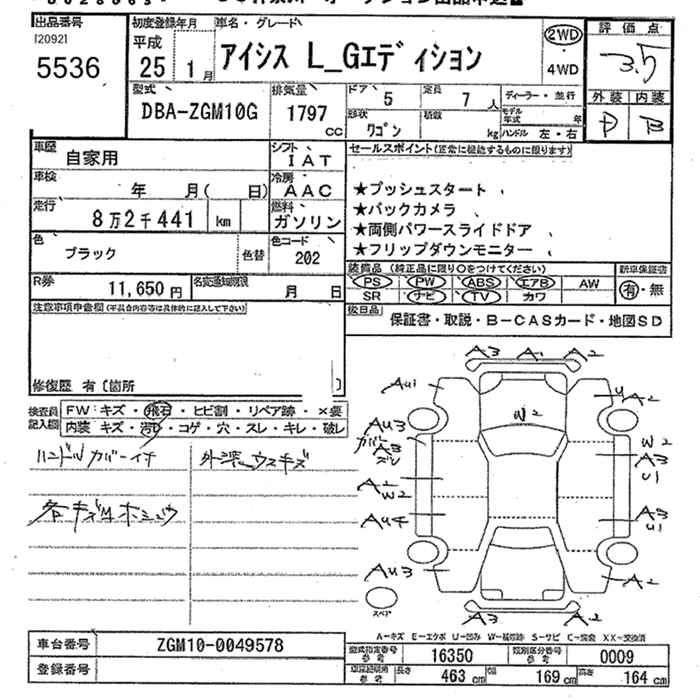 出品番号
[2092]
5536
初度登録年月
平成
25年 1月
車名・グレード
アイシス L_Gエディション
2WD
・
4WD
評価点
3.5
外装 内装
D B
型式
DBA-ZGM10G
排気量
1797
cc
ドア 5
定員 7人
形状 ワゴン
積載 kg
ディーラー・並行
モデル年式 年
ハンドル 左・右
車歴 自家用
シフト IAT
車検 年 月( 日)
冷房 AAC
走行 8万2千441 km
燃料 ガソリン
色 ブラック
色替
色コード 202
R券 11,650円
名変通知期限 月 日
セールスポイント (正常に機能するものに限ります)
★プッシュスタート
★バックカメラ
★両側パワースライドドア
★フリップダウンモニター
装備品 (純正品に限り○をつけてください)
PS PW ABS エアB AW
SR ナビ TV カワ
新車保証書
有・無
後日品
保証書・取説・B-CASカード・地図SD
注意事項申告欄
修復歴 有〔箇所 〕
検査員記入欄
FW:キズ・飛石・ヒビ割・リペア跡・×要
内装 キズ・汚レ・コゲ・穴・スレ・キレ・破レ
ハンドルカバーイチ
外装ウスキズ
各キズ凹
A3 A1 A2
AU1
U A2
AU3
カバー
A3
W2
W2
A3
U1
A2
W2
AU4
A3
U1
AU3
A2
スペア
A3 A2
A-キズ E-エクボ U-凹み W-補修跡 S-サビ C-腐食 XX-交換済
車台番号 ZGM10-0049578
登録番号
型式指定番号 参考 16350
類別区分番号 参考 0009
参考 長さ 463 cm 幅 169 cm 高さ 164 cm